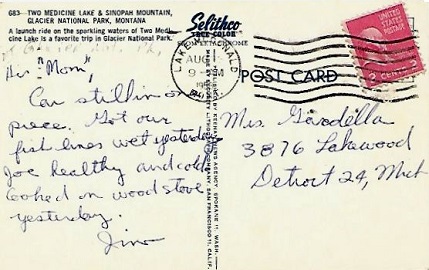 683—TWO MEDICINE LAKE & SINOPAH MOUNTAIN,
GLACIER NATIONAL PARK, MONTANA
A launch ride on the sparkling waters of Two Medi-
cine Lake is a favorite trip in Glacier National Park.
Selithco
TRUE COLOR
LAKE McDONALD
AUG
9
PM
POST CARD
2 CENTS 2
"Mom",
Car still in one
piece. Got our
fish lines wet yesterday.
Joe healthy and
Cooked on wood stove
yesterday.
Jim
Mrs. Gardella
3876 Lakewood
Detroit 24, Mich